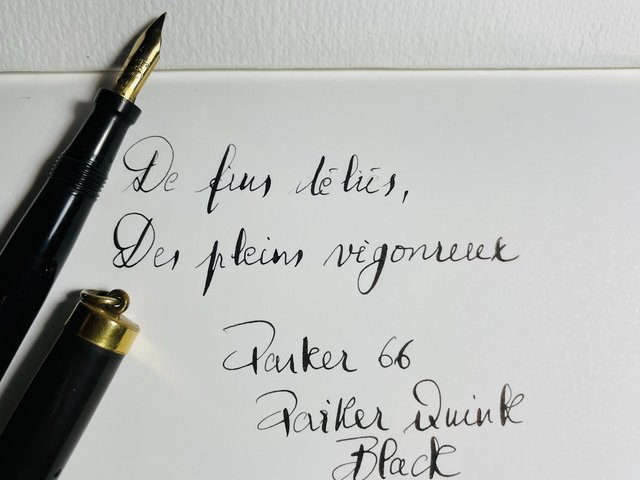 De fins déliés,
Des pleins vigoureux
Parker 66
Parker Quink
Black